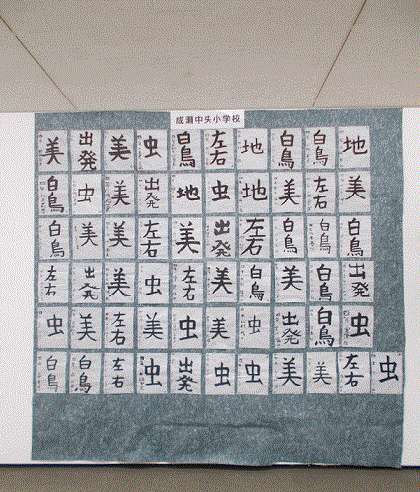 成瀬中央小学校
美 出発 美 虫 白鳥 左右 地 白鳥 白鳥 地
白鳥 虫 美 出発 地 虫 地 美 左右 美
白鳥 美 美 左右 美 出発 左右 白鳥 白鳥 白鳥
左右 出発 美 虫 左右 美 白鳥 美 白鳥 出発
虫 美 左右 美 虫 美 虫 出発 白鳥 虫
白鳥 白鳥 左右 虫 出発 虫 虫 美 美 左右 虫